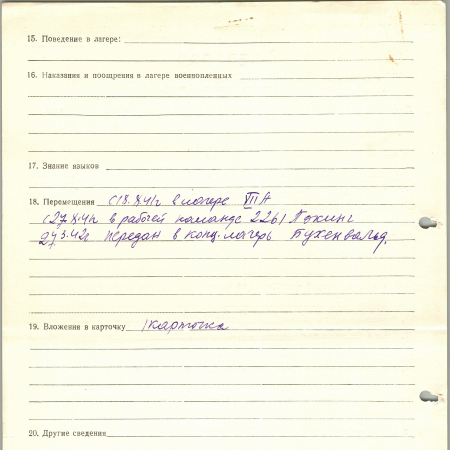 15. Поведение в лагере:
16. Наказания и поощрения в лагере военнопленных
17. Знание языков
18. Перемещения с 18.X.41г в лагере VII A
с 27.X.41г в рабочей команде 2261 Покинг
27.3.42г передан в конц. лагерь Бухенвальд.
19. Вложения в карточку 1 карточка
20. Другие сведения